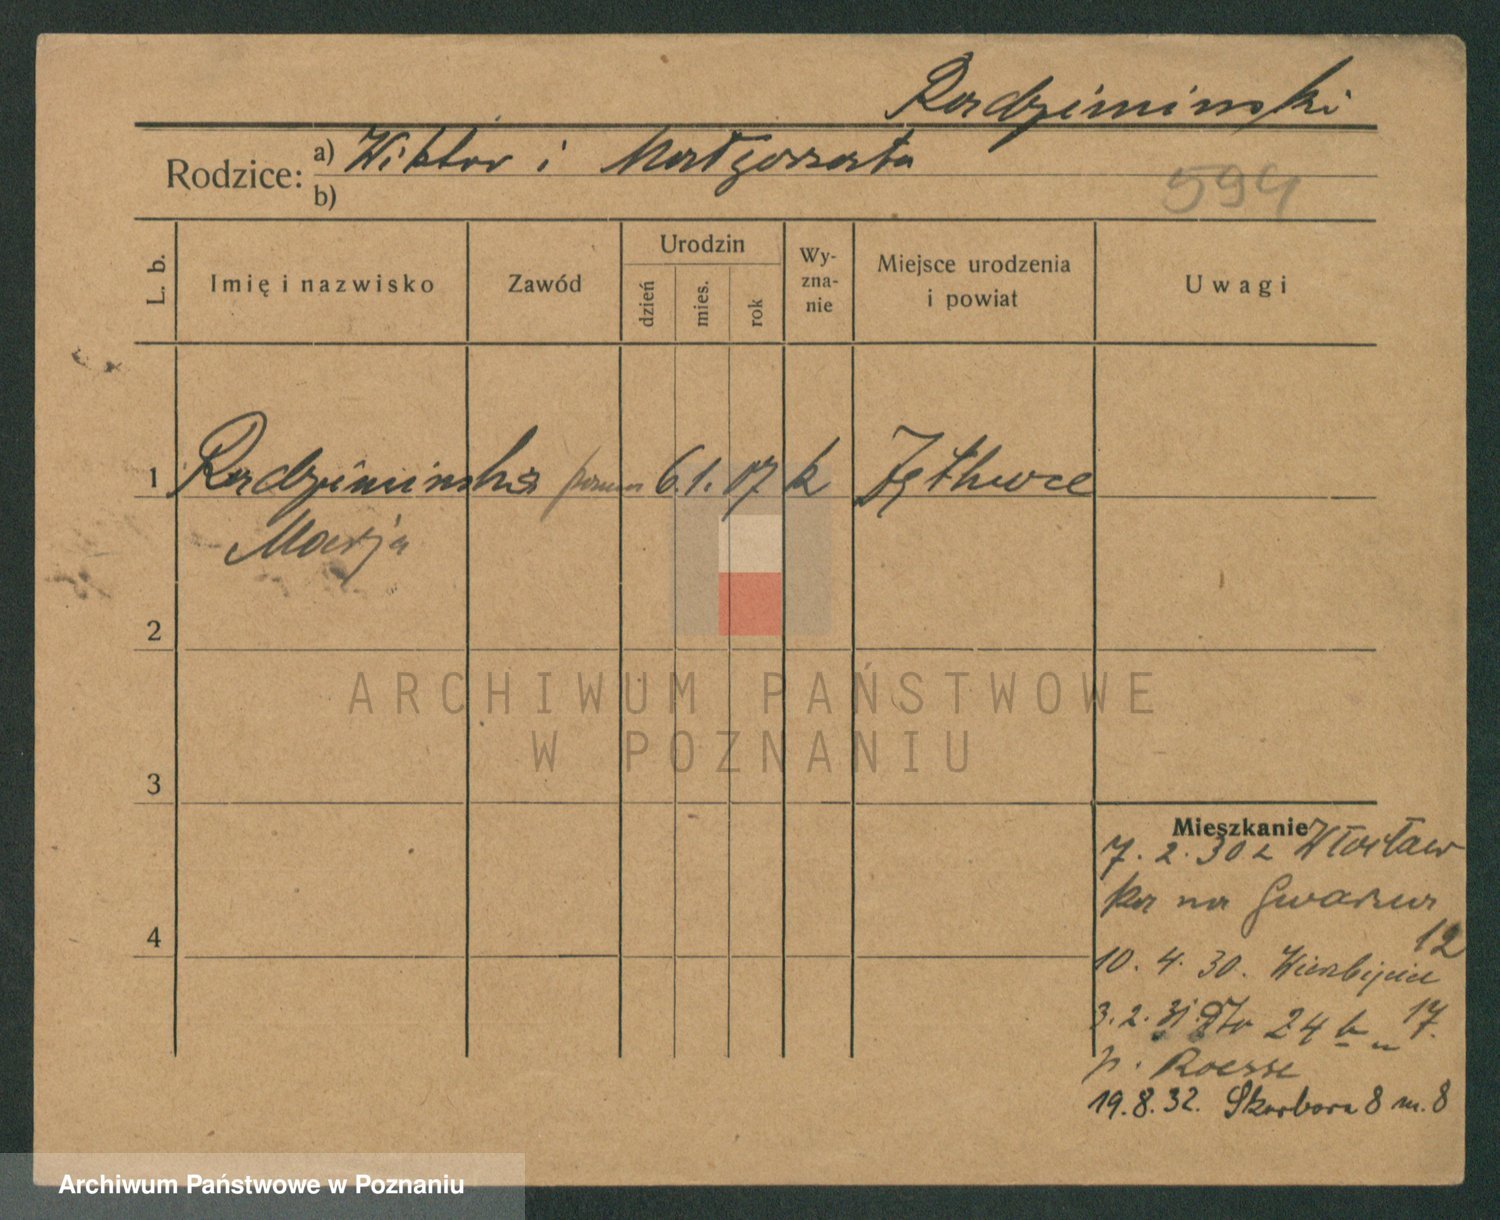 Radziminski
Rodzice: a) Wiktor i Małgorzata
b)
594
L. b.
Imię i nazwisko
Zawód
Urodzin
dzień
mies.
rok
Wy-
zna-
nie
Miejsce urodzenia
i powiat
Uwagi
1 Radzimińska 6. 1. 07 k
Marja
2
3
4
ARCHIWUM PAŃSTWOWE
W POZNANIU
Mieszkanie
7. 2. 30 z Włocław
ka na Gwarna
12
10. 4. 30. Wierzbięcice
3. 2. 31. Dto 24 b m 17.
p. Roesse
19. 8. 32. Skarbowa 8 m. 8
Archiwum Państwowe w Poznaniu